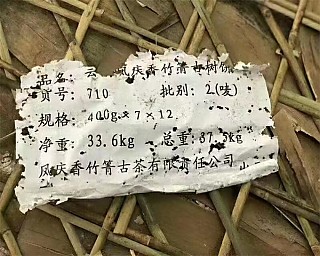 品名: 云 凤庆香竹箐古树
货号: 710 批别: 2(唛)
规格: 400g×7×12
净重: 33.6kg 总重:37.5kg
凤庆香竹箐古茶有限责任公司